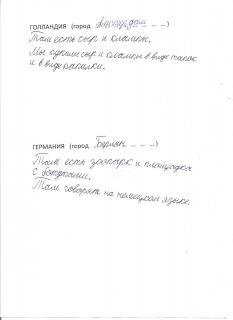 ГОЛЛАНДИЯ (город Амстердам _ _ _)
Там есть сыр и кломпы.
Мы купили сыр и кломпы в виде тапок
и в виде копилки.
ГЕРМАНИЯ (город Берлин _ _ _)
Там есть зоопарк и площадка
с батутами.
Там говорят на немецком языке.